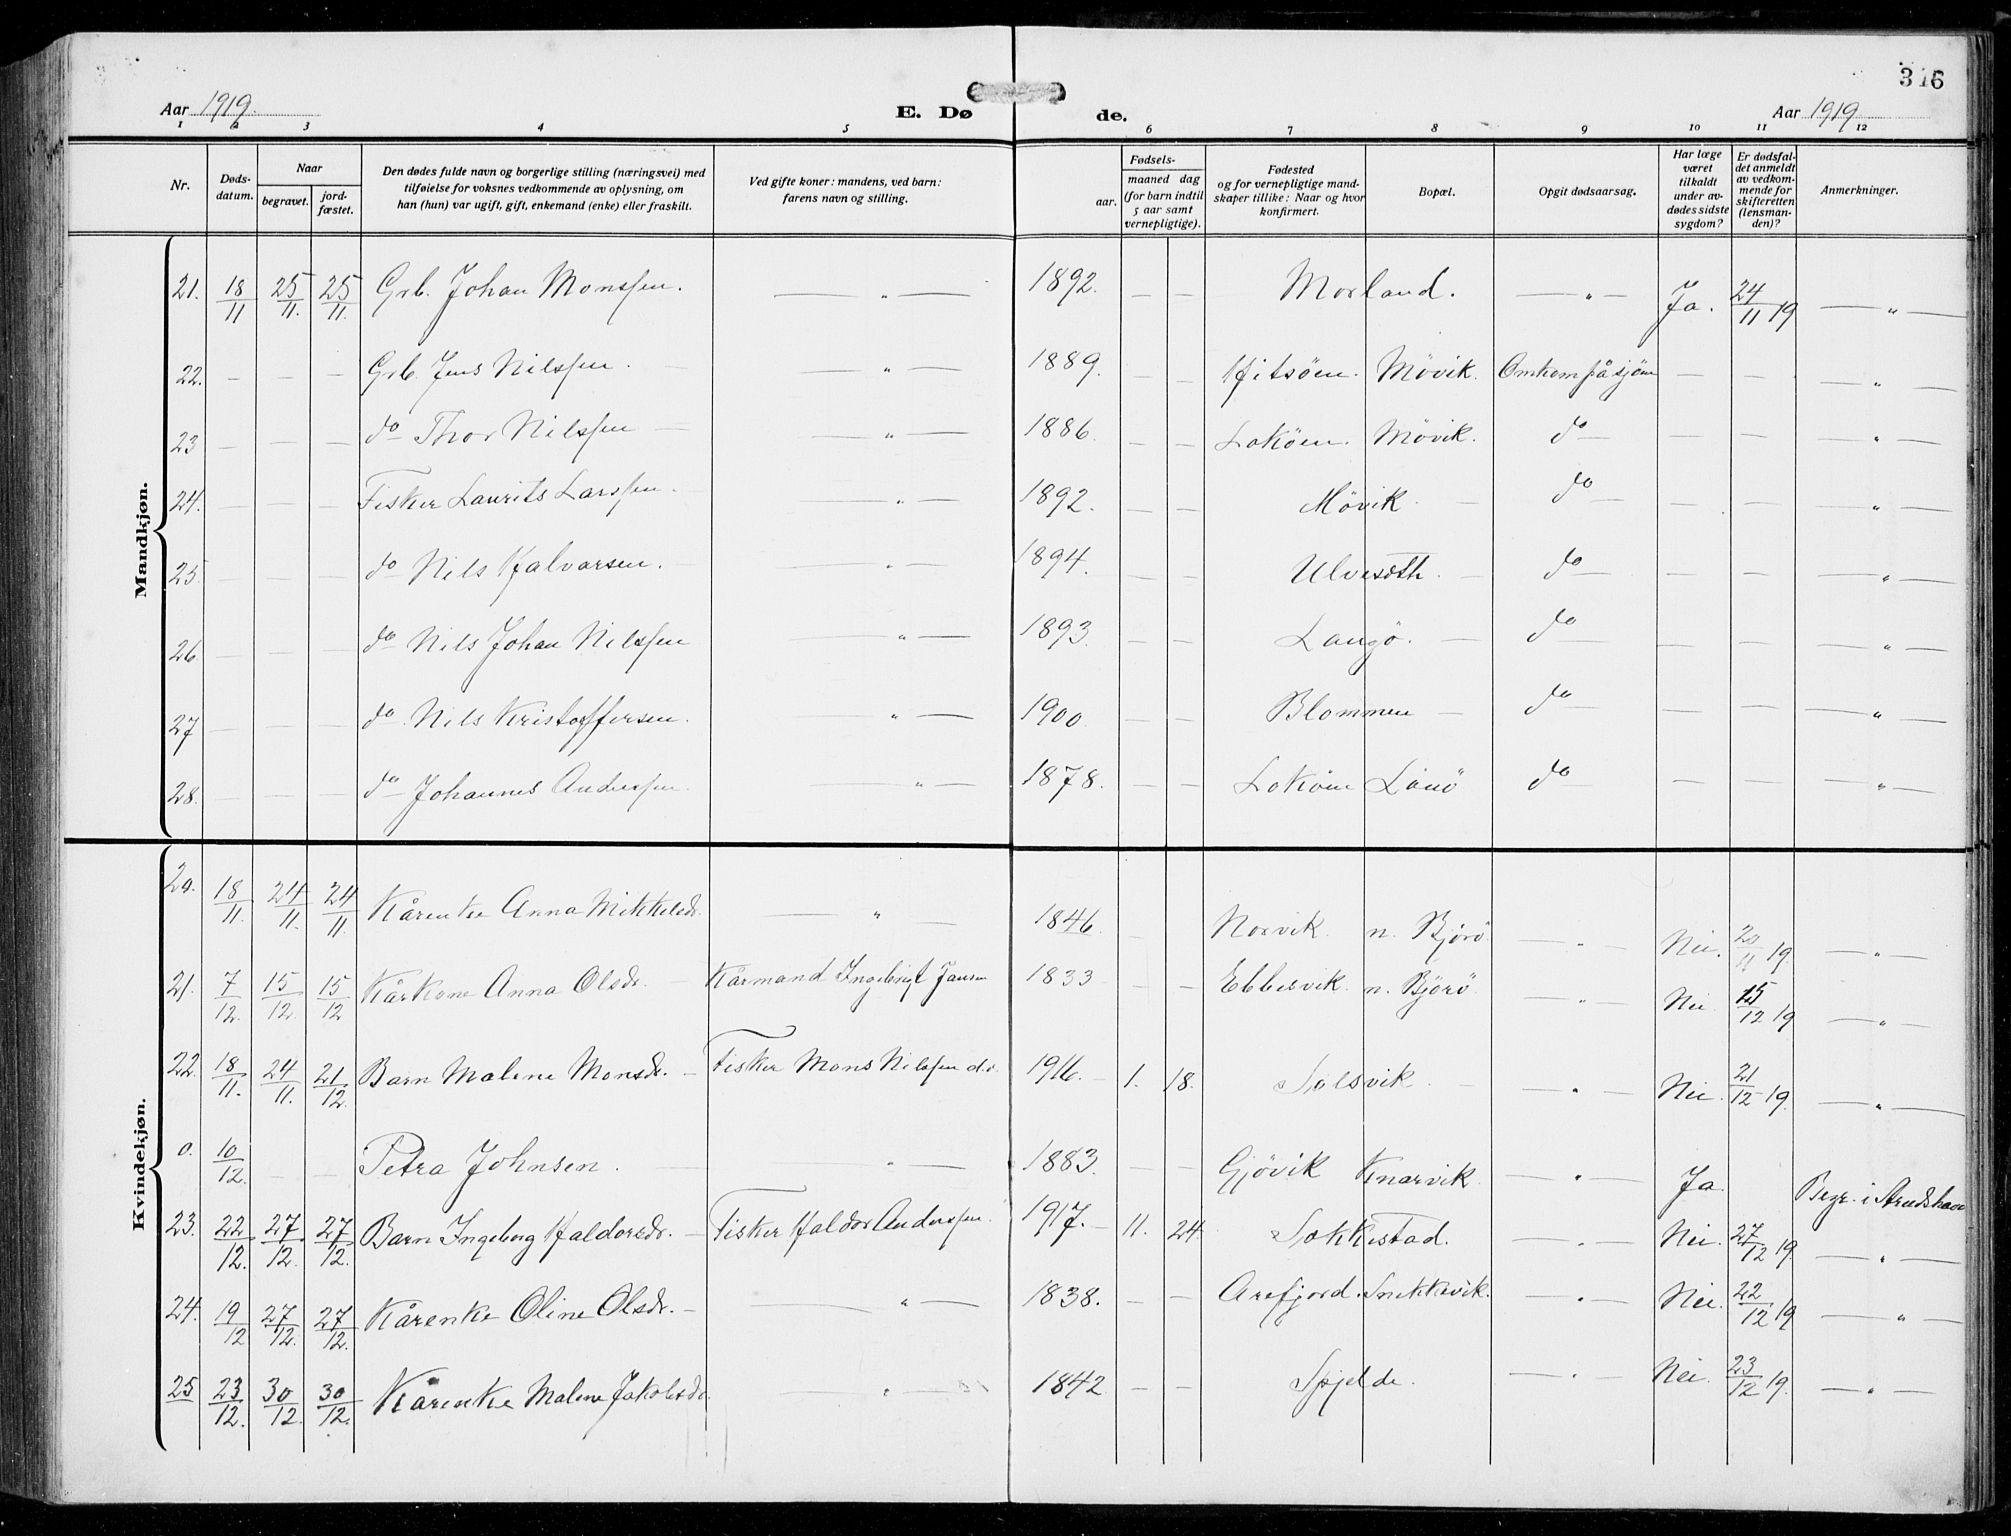 316
Aar 1919.
E. Døde.
Aar 1919
1 2 3 4 5 6 7 8 9 10 11 12
Nr.
Døds-datum.
Naar
begravet.
jord-fæstet.
Den dødes fulde navn og borgerlige stilling (næringsvei) med
tilføielse for voksnes vedkommende av oplysning, om
han (hun) var ugift, gift, enkemand (enke) eller fraskilt.
Ved gifte koner: mandens, ved barn:
farens navn og stilling.
Fødsels-
aar. maaned dag
(for barn indtil
5 aar samt
vernepligtige).
Fødested
og for vernepligtige mand-
skaper tillike: Naar og hvor
konfirmert.
Bopæl.
Opgit dødsaarsag.
Har læge
været
tilkaldt
under av-
dødes sidste
sygdom?
Er dødsfal-
det anmeldt
av vedkom-
mende for
skifteretten
(lensman-
den)?
Anmerkninger.
Mandkjøn.
21. 18/11 25/11. 25/11. Grb. Johan Monssen. — „ — 1892. — — Morland. — „ — Ja. 24/11 19 — „ —
22. — — — Grb. Jens Nilssen. — „ — 1889. — — Hitsöen. Mövik. Omkom på sjöen — — „ —
23 — — — do Thor Nilssen — „ — 1886. — — Loköen. Mövik. do — — — „ —
24. — — — Fisker Laurits Larssen. — „ — 1892. — — Mövik — do — — — „ —
25 — — — do Nils Halvorsen. — „ — 1894. — — Ulvesöth. — do — — — „ —
26 — — — do Nils Johan Nilssen — „ — 1893. — — Langö. — do — — — „ —
27 — — — do Nils Kristoffersen. — „ — 1900. — — Blommen — do — — — „ —
28. — — — do Johannes Anderssen. — „ — 1878. — — Loköen Lönö do — — — „ —
Kvindekjøn.
20. 18/11. 24/11. 24/11. Kårenke Anna Mikkelsdr. — „ — 1846. — Norvik n. Björö. — „ — Nei. 20/11 19. — „ —
21. 7/12. 15/12. 15/12 Kårkone Anna Olsdr. — Kårmand Ingebrigt Jansen 1833 — — Ebbesvik. n. Björö — „ — Nei 15/12 19 — „ —
22. 18/11. 24/11. 21/12. Barn Malene Monsdr. — Fisker Mons Nilssen d.s. 1916. — 1. 18. Solsvik. — — „ — Nei. 21/12 19. — „ —
0. 10/12. — — Petra Johnsen. — „ — 1883. — — Gjövik Knarvik — „ — Ja. Begr. i
23. 22/12. 27/12. 27/12. Barn Ingeborg Haldorsdr. — Fisker Haldor Anderssen. 1917. — 11. 24. Sokkestad. — „ — Nei. 27/12 19. — „ —
24. 19/12 27/12. 27/12. Kårenke Oline Olsdr. — — „ — 1838. — — Arefjord. Snekkevik. — „ — Nei. 22/12 19 — „ —
25 23/12. 30/12. 30/12. Kårenke Malene Jakobsdr. — „ — 1842 — — Spjelde. — „ — Nei. 23/12 19. — „ —